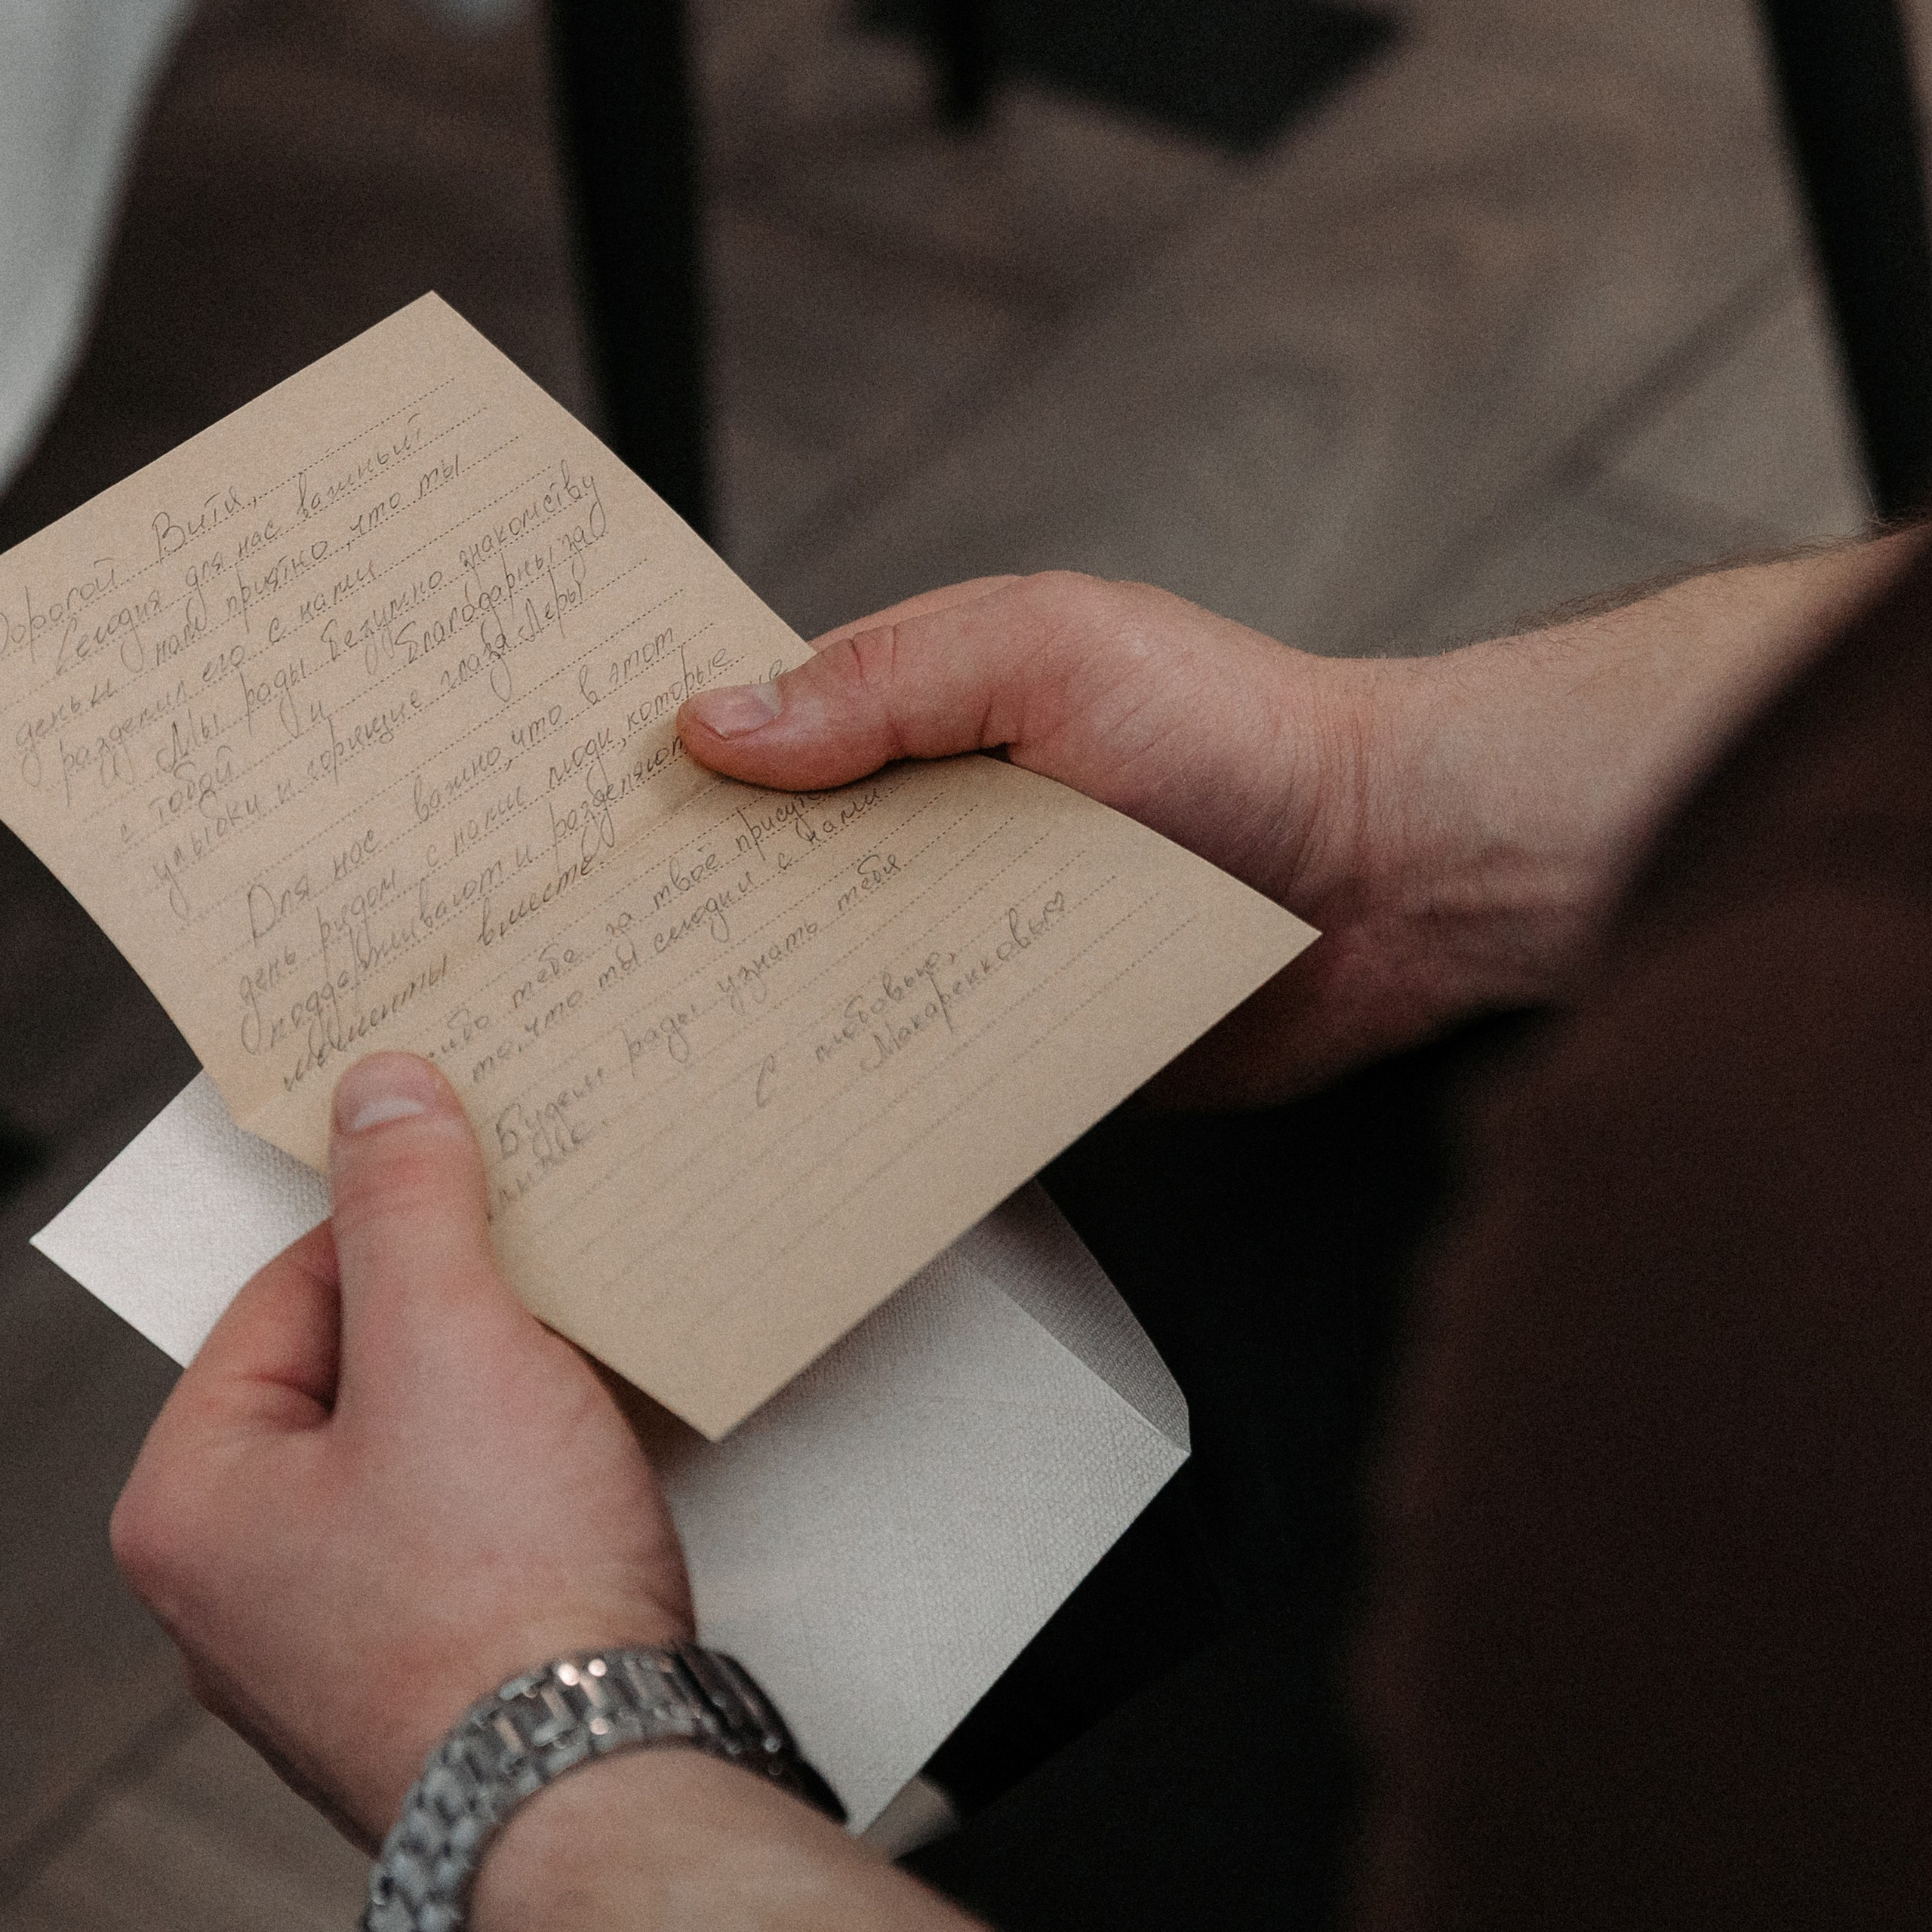 Дорогой Витя,
Сегодня для нас важный
день и нам приятно, что ты
разделил его с нами
Мы рады безумно знакомству
с тобой и благодарны за
улыбки и горящие глаза Леры
Для нас важно, что в этот
день рядом с нами люди, которые
поддерживают и разделяют
моменты вместе.
тебе за твоё
то, что ты сегодня с нами.
Будем рады узнать тебя
С любовью,
Макаренковы♡